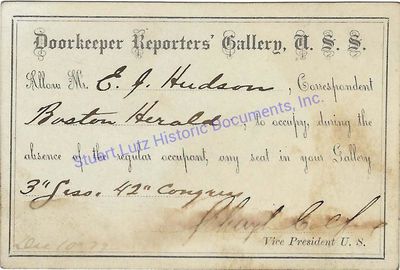 Doorkeeper Reporters' Gallery, U. S. S.
Allow Mr. E. J. Hudson, Correspondent
Boston Herald, to occupy, during the
absence of the regular occupant, any seat in your Gallery
Stuart Lutz Historic Documents, Inc.
3" Sess. 42" Congress
Vice President U. S.